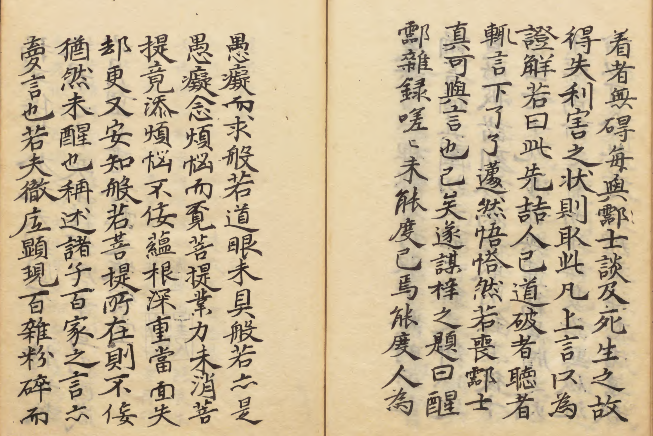 看者無碍每與酆士談及死生之故
得失利害之状則取此凡上言以為
證解若曰此先喆人已道破者聽者
輙言下了了邈然悟嗒然若喪酆士
真可與言也已矣遂謀梓之題曰醒
酆雜録嗟〻未能度己焉能度人為
愚癡而求般若道眼未具般若亦是
愚癡念煩悩而覔菩提業力未消菩
提竟添煩悩不佞蘊根深重當面失
却更又安知般若菩提所在則不佞
猶然未醒也稱述諸子百家之言亦
夢言也若夫徹底顯現百雜粉碎而